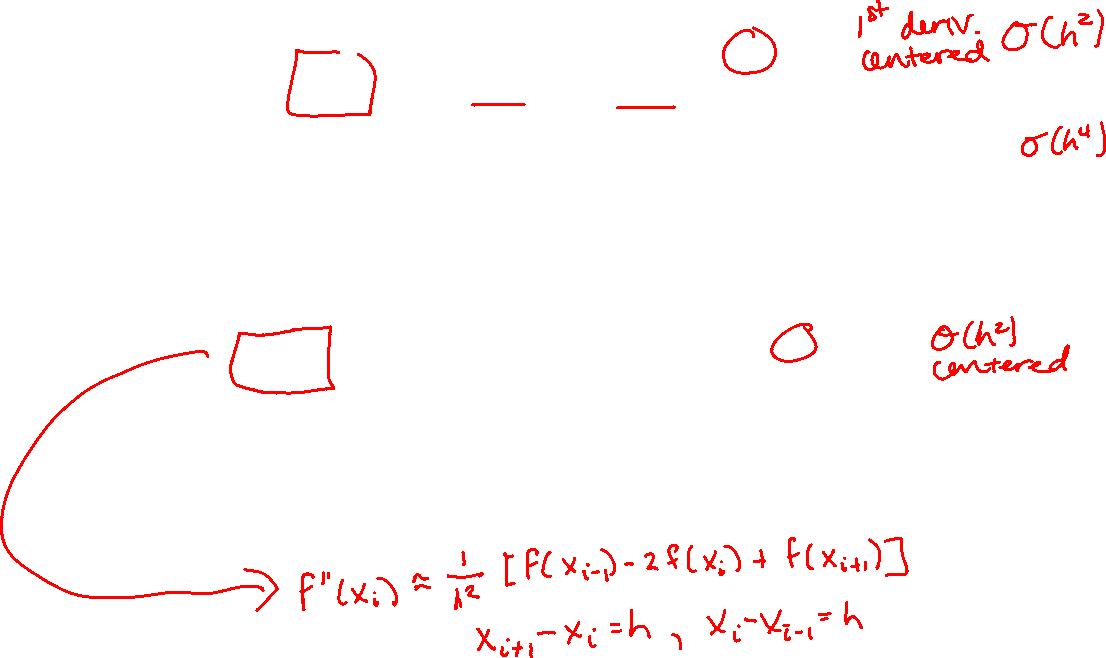 1st deriv. O(h²)
centered
O(h⁴)
O(h²)
centered
f''(xᵢ) ≈ 1/h² [f(xᵢ₋₁) - 2f(xᵢ) + f(xᵢ₊₁)]
xᵢ₊₁ - xᵢ = h, xᵢ - xᵢ₋₁ = h